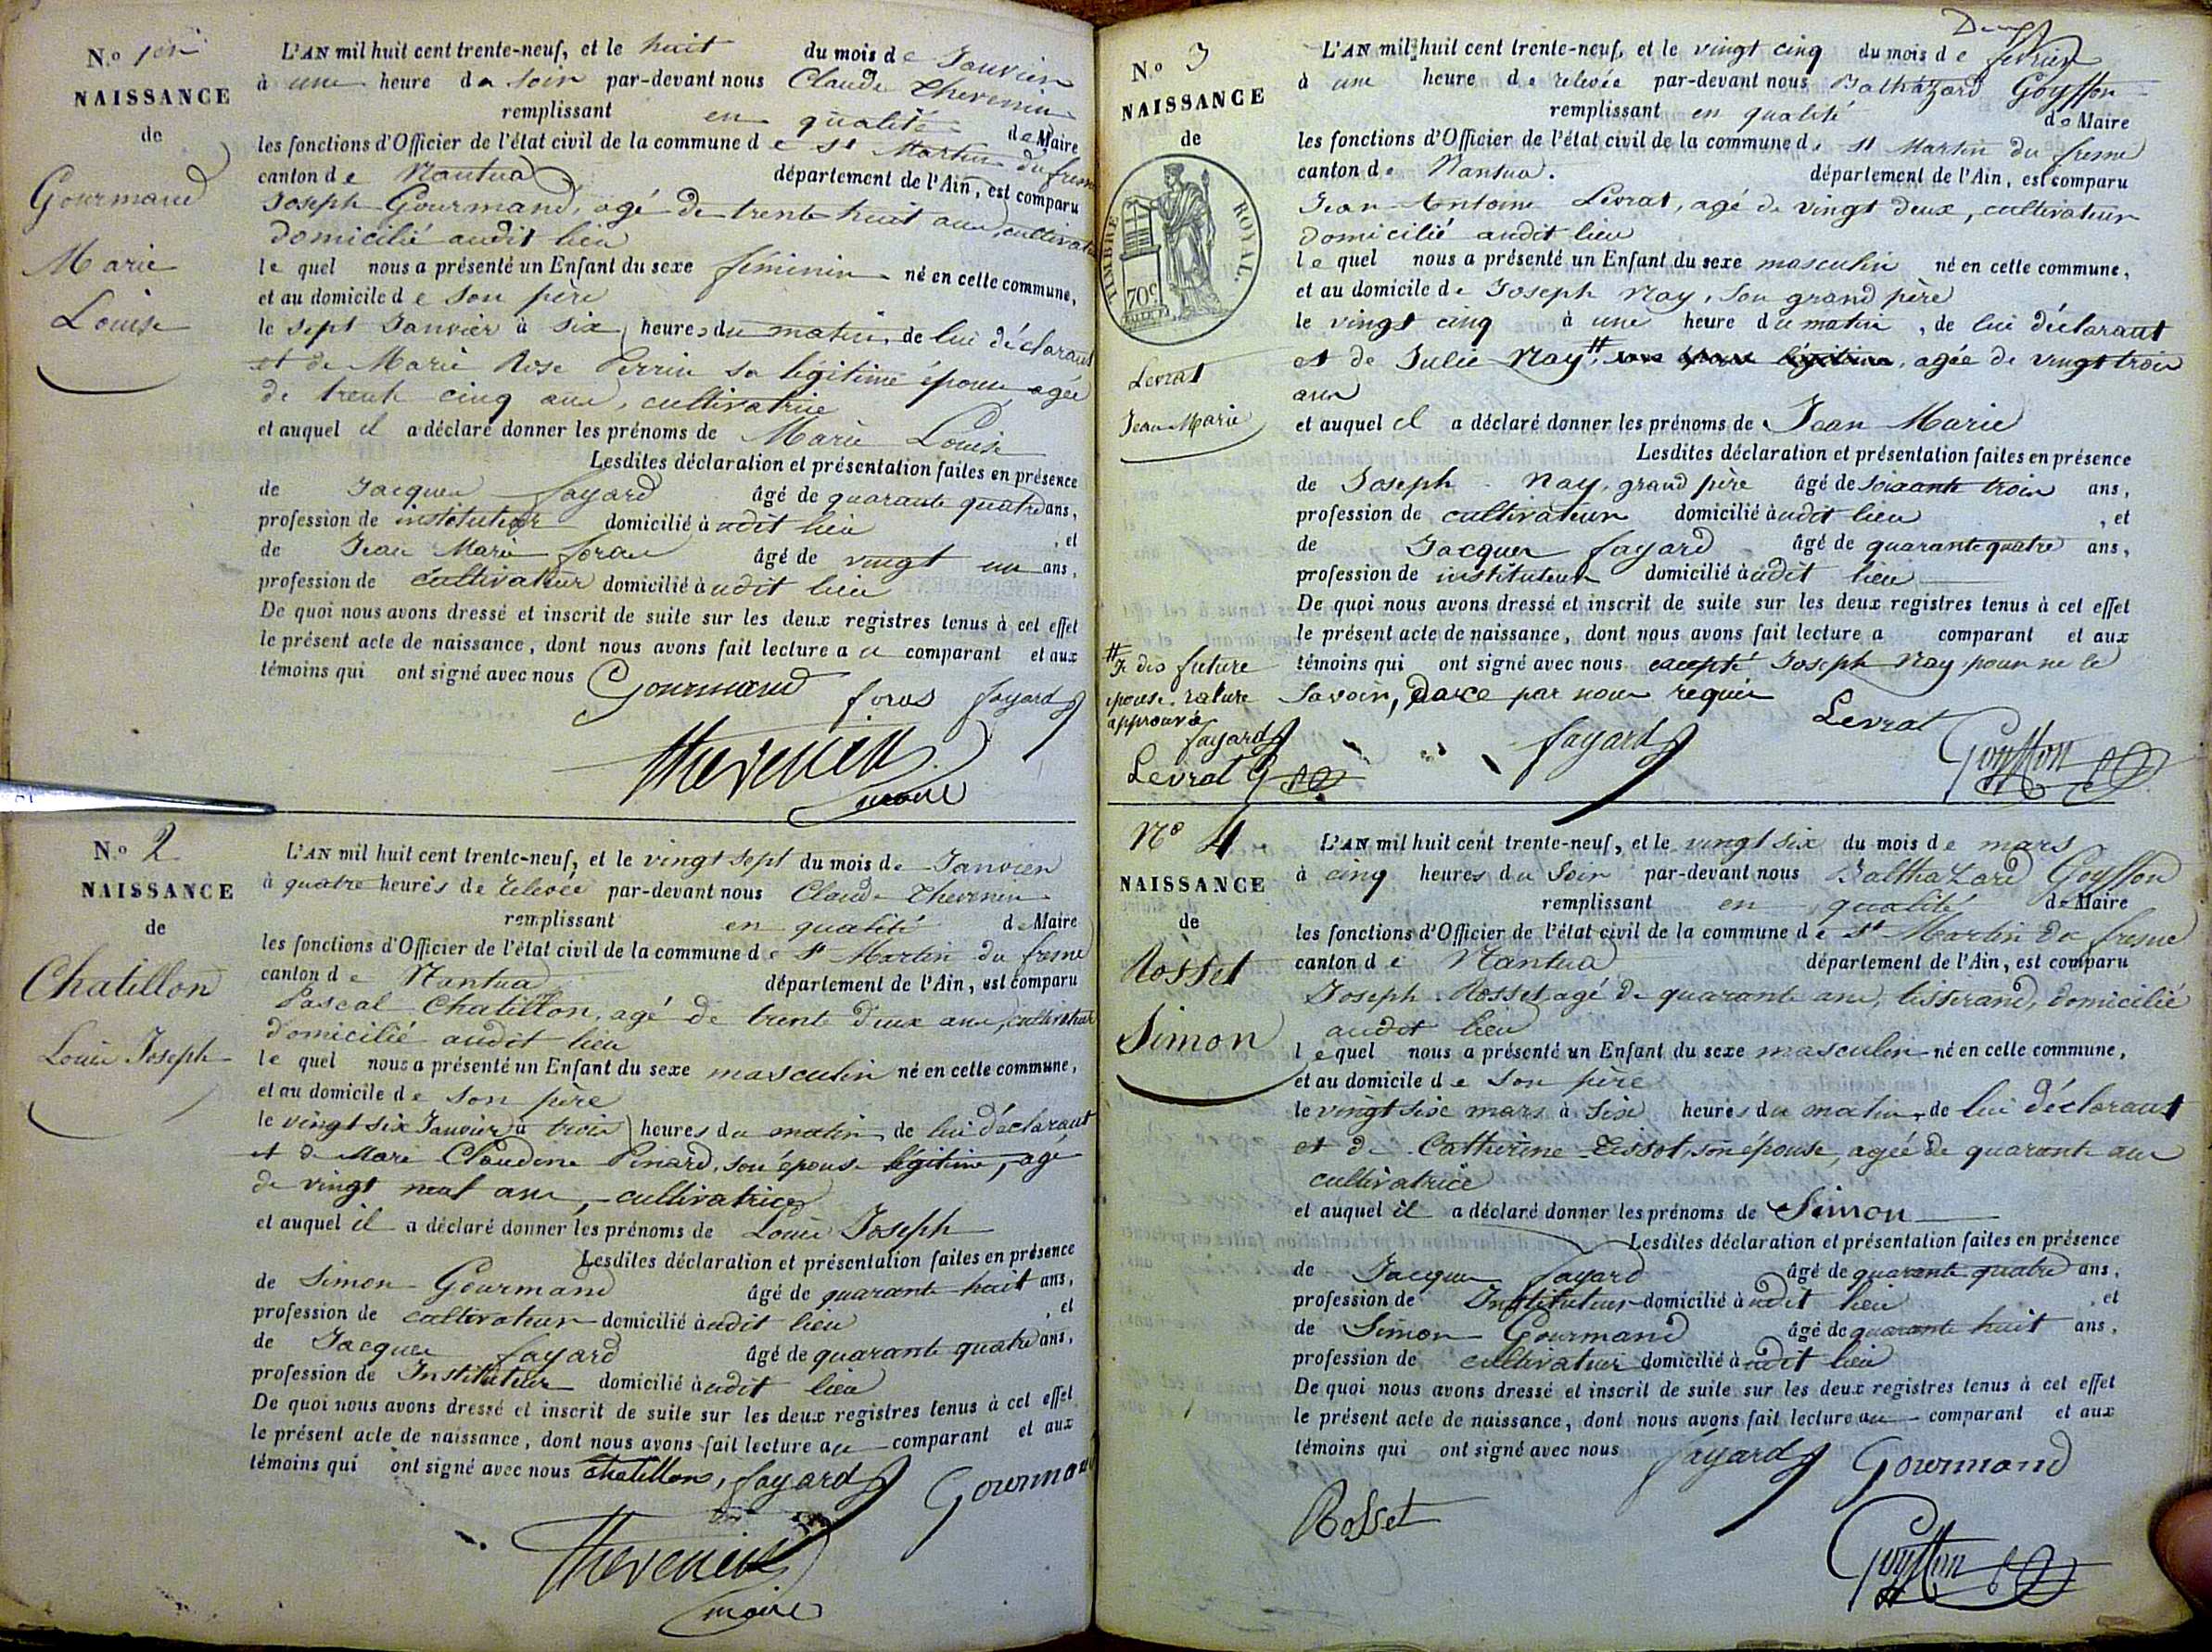 N.o 1er
NAISSANCE
de
Gourmand
Marie
Louise
L'AN mil huit cent trente-neuf, et le huit du mois de Janvier
à une heure du soir par-devant nous Claude Thevenin
remplissant en qualité de Maire
les fonctions d'Officier de l'état civil de la commune de St Martin du fresne
canton de Nantua département de l'Ain, est comparu
Joseph Gourmand, agé de trente huit ans, cultivateur
domicilié audit lieu
le quel nous a présenté un Enfant du sexe féminin né en cette commune,
et au domicile de son père
le sept Janvier à six heures du matin, de lui déclarant
et de Marie Rose Perrin sa légitime épouse, agée
de trente cinq ans, cultivatrice
et auquel il a déclaré donner les prénoms de Marie Louise
Lesdites déclaration et présentation faites en présence
de Jacques fayard âgé de quarante quatre ans,
profession de instituteur domicilié audit lieu , et
de Jean Marie foras âgé de vingt un ans,
profession de cultivateur domicilié audit lieu
De quoi nous avons dressé et inscrit de suite sur les deux registres tenus à cet effet
le présent acte de naissance, dont nous avons fait lecture au comparant et aux
témoins qui ont signé avec nous
Gourmand foras fayard
Thevenin
maire
N.o 2
NAISSANCE
de
Chatillon
Louis Joseph
L'AN mil huit cent trente-neuf, et le vingt sept du mois de Janvier
à quatre heures de relevée par-devant nous Claude Thevenin
remplissant en qualité de Maire
les fonctions d'Officier de l'état civil de la commune de St Martin du fresne
canton de Nantua département de l'Ain, est comparu
Pascal Chatillon, agé de trente deux ans, cultivateur
domicilié audit lieu
le quel nous a présenté un Enfant du sexe masculin né en cette commune,
et au domicile de son père
le vingt six Janvier à trois heures du matin, de lui déclarant
et de Marie Claudine Pinard, son épouse légitime, agé
de vingt neuf ans, cultivatrice
et auquel il a déclaré donner les prénoms de Louis Joseph
Lesdites déclaration et présentation faites en présence
de Simon Gourmand âgé de quarante huit ans,
profession de cultivateur domicilié audit lieu , et
de Jacques fayard âgé de quarante quatre ans,
profession de Instituteur domicilié audit lieu
De quoi nous avons dressé et inscrit de suite sur les deux registres tenus à cet effet
le présent acte de naissance, dont nous avons fait lecture au comparant et aux
témoins qui ont signé avec nous Chatillon, fayard Gourmand
Thevenin
maire
N.o 3
NAISSANCE
de
TIMBRE ROYAL.
70c
Levrat
Jean Marie
Deux
L'AN mil huit cent trente-neuf, et le vingt cinq du mois de fevrier
à une heure de relevée par-devant nous Balthazard Goyffon
remplissant en qualité de Maire
les fonctions d'Officier de l'état civil de la commune de St Martin du fresne
canton de Nantua. département de l'Ain, est comparu
Jean Antoine Levrat, agé de vingt deux, cultivateur
domicilié audit lieu
le quel nous a présenté un Enfant du sexe masculin né en cette commune,
et au domicile de Joseph Nay, son grand père
le vingt cinq à une heure du matin , de lui déclarant
et de Julie Nay # son épouse légitime, agée de vingt trois
ans
et auquel il a déclaré donner les prénoms de Jean Marie
Lesdites déclaration et présentation faites en présence
de Joseph Nay, grand père âgé de soixante trois ans,
profession de cultivateur domicilié audit lieu , et
de Jacques fayard âgé de quarante quatre ans,
profession de instituteur domicilié audit lieu
De quoi nous avons dressé et inscrit de suite sur les deux registres tenus à cet effet
le présent acte de naissance, dont nous avons fait lecture a comparant et aux
témoins qui ont signé avec nous excepté Joseph Nay pour ne le
savoir, de ce par nous requis
# Je dis future
épouse. rature
approuvé
fayard
Levrat G
fayard Levrat
Goyffon
No 4
NAISSANCE
de
Rosset
Simon
L'AN mil huit cent trente-neuf, et le vingt six du mois de mars
à cinq heures du Soir par-devant nous Balthazard Goyffon
remplissant en qualité de Maire
les fonctions d'Officier de l'état civil de la commune de St Martin du fresne
canton de Nantua département de l'Ain, est comparu
Joseph Rosset, agé de quarante ans, tisserand, domicilié
audit lieu
le quel nous a présenté un Enfant du sexe masculin né en cette commune,
et au domicile de son père
le vingt six mars à six heures du matin, de lui déclarant
et de Catherine Tissot, son épouse, agée de quarante ans
cultivatrice
et auquel il a déclaré donner les prénoms de Simon
Lesdites déclaration et présentation faites en présence
de Jacques fayard âgé de quarante quatre ans,
profession de Instituteur domicilié audit lieu , et
de Simon Gourmand âgé de quarante huit ans,
profession de cultivateur domicilié audit lieu
De quoi nous avons dressé et inscrit de suite sur les deux registres tenus à cet effet
le présent acte de naissance, dont nous avons fait lecture au comparant et aux
témoins qui ont signé avec nous fayard Gourmand
Rosset
Goyffon